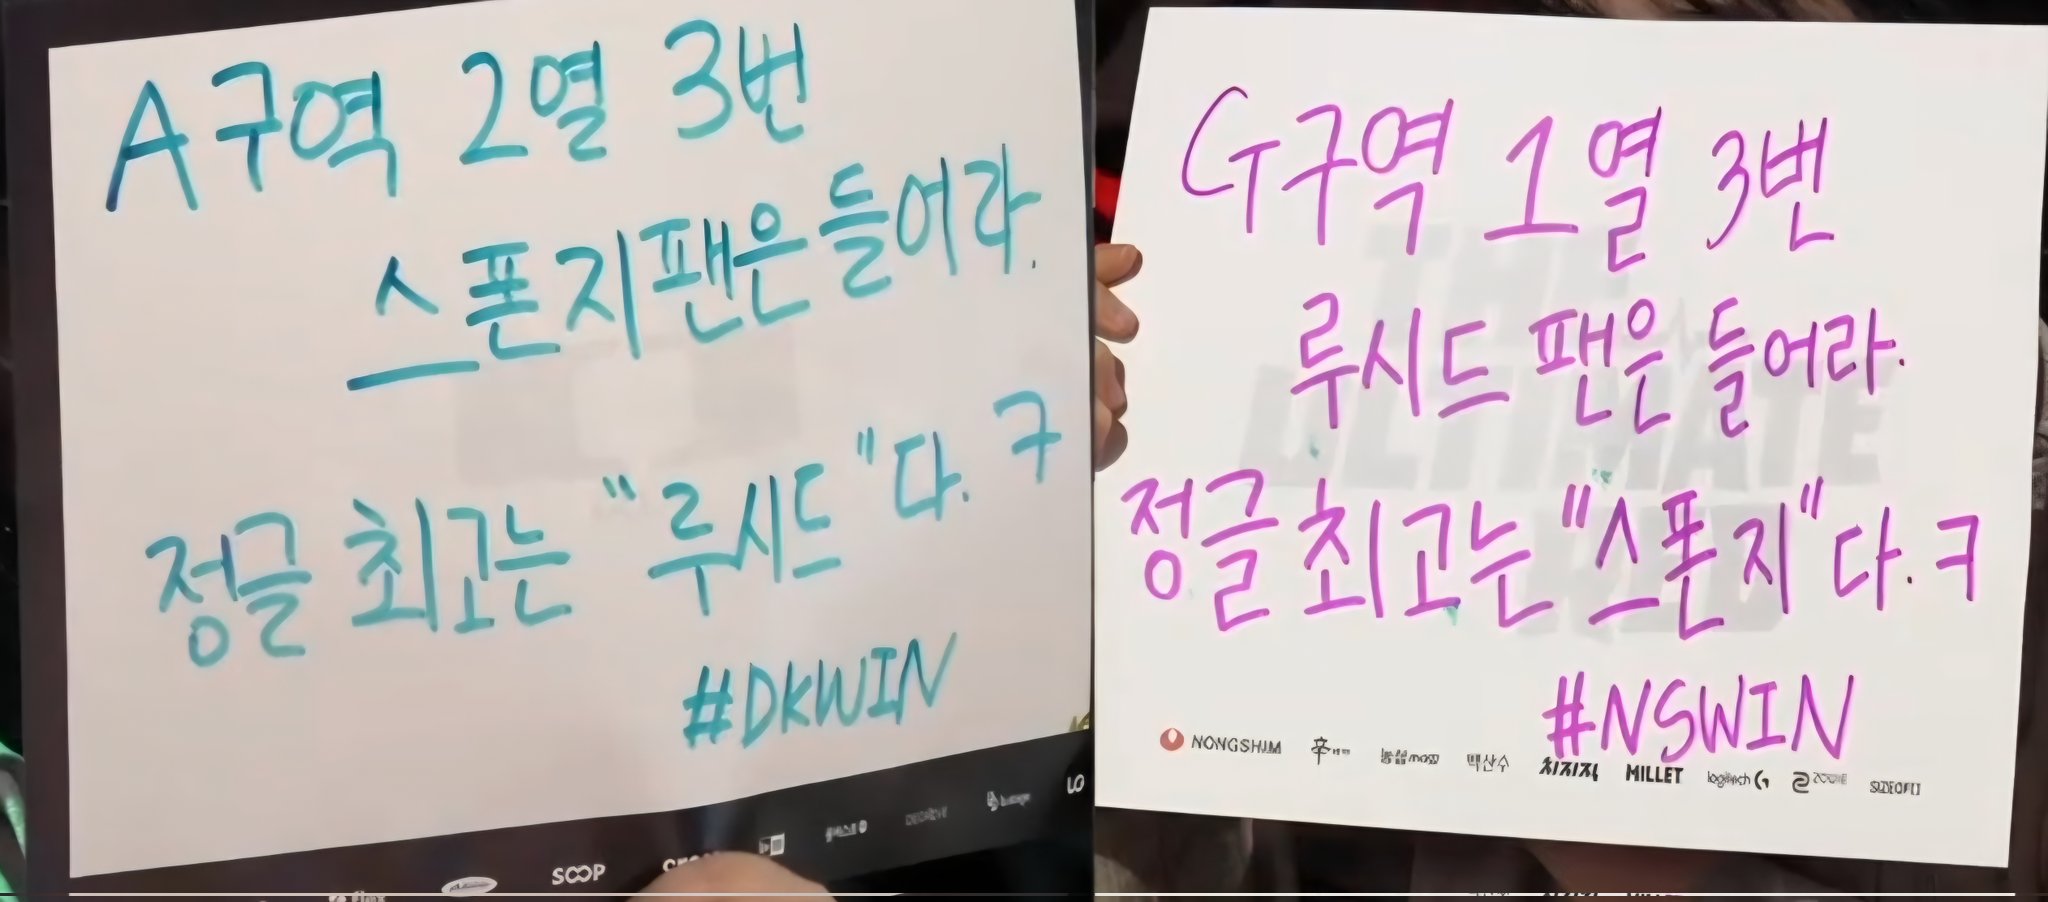 A구역 2열 3번
스폰지팬은들어라.
정글 최고는 "루시드"다. ㅋ
#DKWIN
SOOP
G구역 1열 3번
루시드 팬은 들어라.
정글 최고는 "스폰지"다. ㅋ
#NSWIN
THE
ULTIMATE
NONGSHIM 백산수 치지직 MILLET logitech G